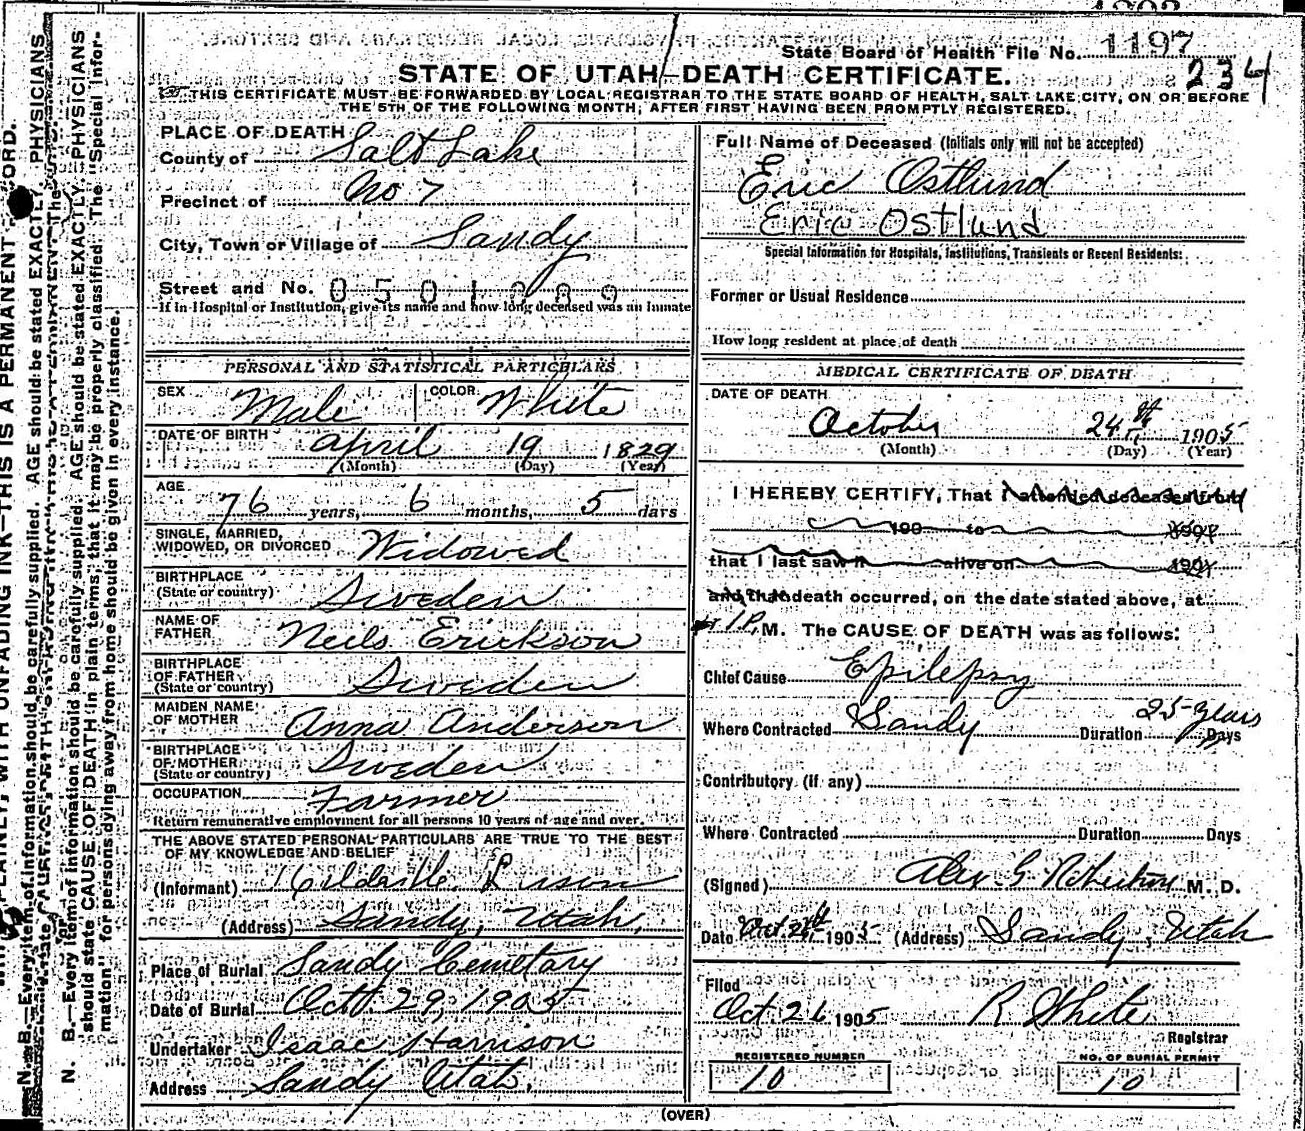 State Board of Health File No. 1197
234
STATE OF UTAH—DEATH CERTIFICATE.
THIS CERTIFICATE MUST BE FORWARDED BY LOCAL REGISTRAR TO THE STATE BOARD OF HEALTH, SALT LAKE CITY, ON OR BEFORE
THE 5TH OF THE FOLLOWING MONTH, AFTER FIRST HAVING BEEN PROMPTLY REGISTERED.
PLACE OF DEATH
County of Salt Lake
Precinct of No 7
City, Town or Village of Sandy
Street and No. 0501889
If in Hospital or Institution, give its name and how long deceased was an inmate
PERSONAL AND STATISTICAL PARTICULARS
SEX Male COLOR White
DATE OF BIRTH April 19 1829
(Month) (Day) (Year)
AGE 76 years, 6 months, 5 days
SINGLE, MARRIED,
WIDOWED, OR DIVORCED Widowed
BIRTHPLACE
(State or country) Sweden
NAME OF
FATHER Neils Erickson
BIRTHPLACE
OF FATHER
(State or country) Sweden
MAIDEN NAME
OF MOTHER Anna Anderson
BIRTHPLACE
OF MOTHER
(State or country) Sweden
OCCUPATION Farmer
Return remunerative employment for all persons 10 years of age and over.
THE ABOVE STATED PERSONAL PARTICULARS ARE TRUE TO THE BEST
OF MY KNOWLEDGE AND BELIEF
(Informant)
(Address) Sandy, Utah,
Place of Burial Sandy Cemetary
Date of Burial Oct. 29, 1905
Undertaker Isaac Harrison
Address Sandy Utah.
Full Name of Deceased (Initials only will not be accepted)
Eric Ostlund
Eric Ostlund
Special Information for Hospitals, Institutions, Transients or Recent Residents:
Former or Usual Residence
How long resident at place of death
MEDICAL CERTIFICATE OF DEATH
DATE OF DEATH
October 24th 1905
(Month) (Day) (Year)
I HEREBY CERTIFY, That I attended deceased from
190 to 190
that I last saw h alive on 190
and that death occurred, on the date stated above, at
1 P. M. The CAUSE OF DEATH was as follows:
Chief Cause Epilepsy
Where Contracted Sandy Duration 25 years Days
Contributory (if any)
Where Contracted Duration Days
(Signed) Alex. G. Robertson M. D.
Date Oct. 26th 1905 (Address) Sandy, Utah
Filed
Oct. 26 1905 R White
Registrar
REGISTERED NUMBER
10
NO. OF BURIAL PERMIT
10
(OVER)
N. B.—Every item of information should be carefully supplied. AGE should be stated EXACTLY. PHYSICIANS
should state CAUSE OF DEATH in plain terms, that it may be properly classified. The "Special Infor-
mation" for persons dying away from home should be given in every instance.
PLAINLY, WITH UNFADING INK—THIS IS A PERMANENT